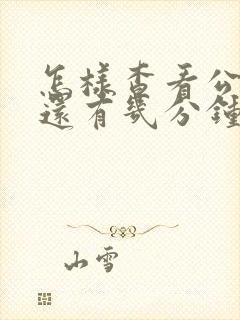 怎樣查看公
還有幾分鐘
山雪